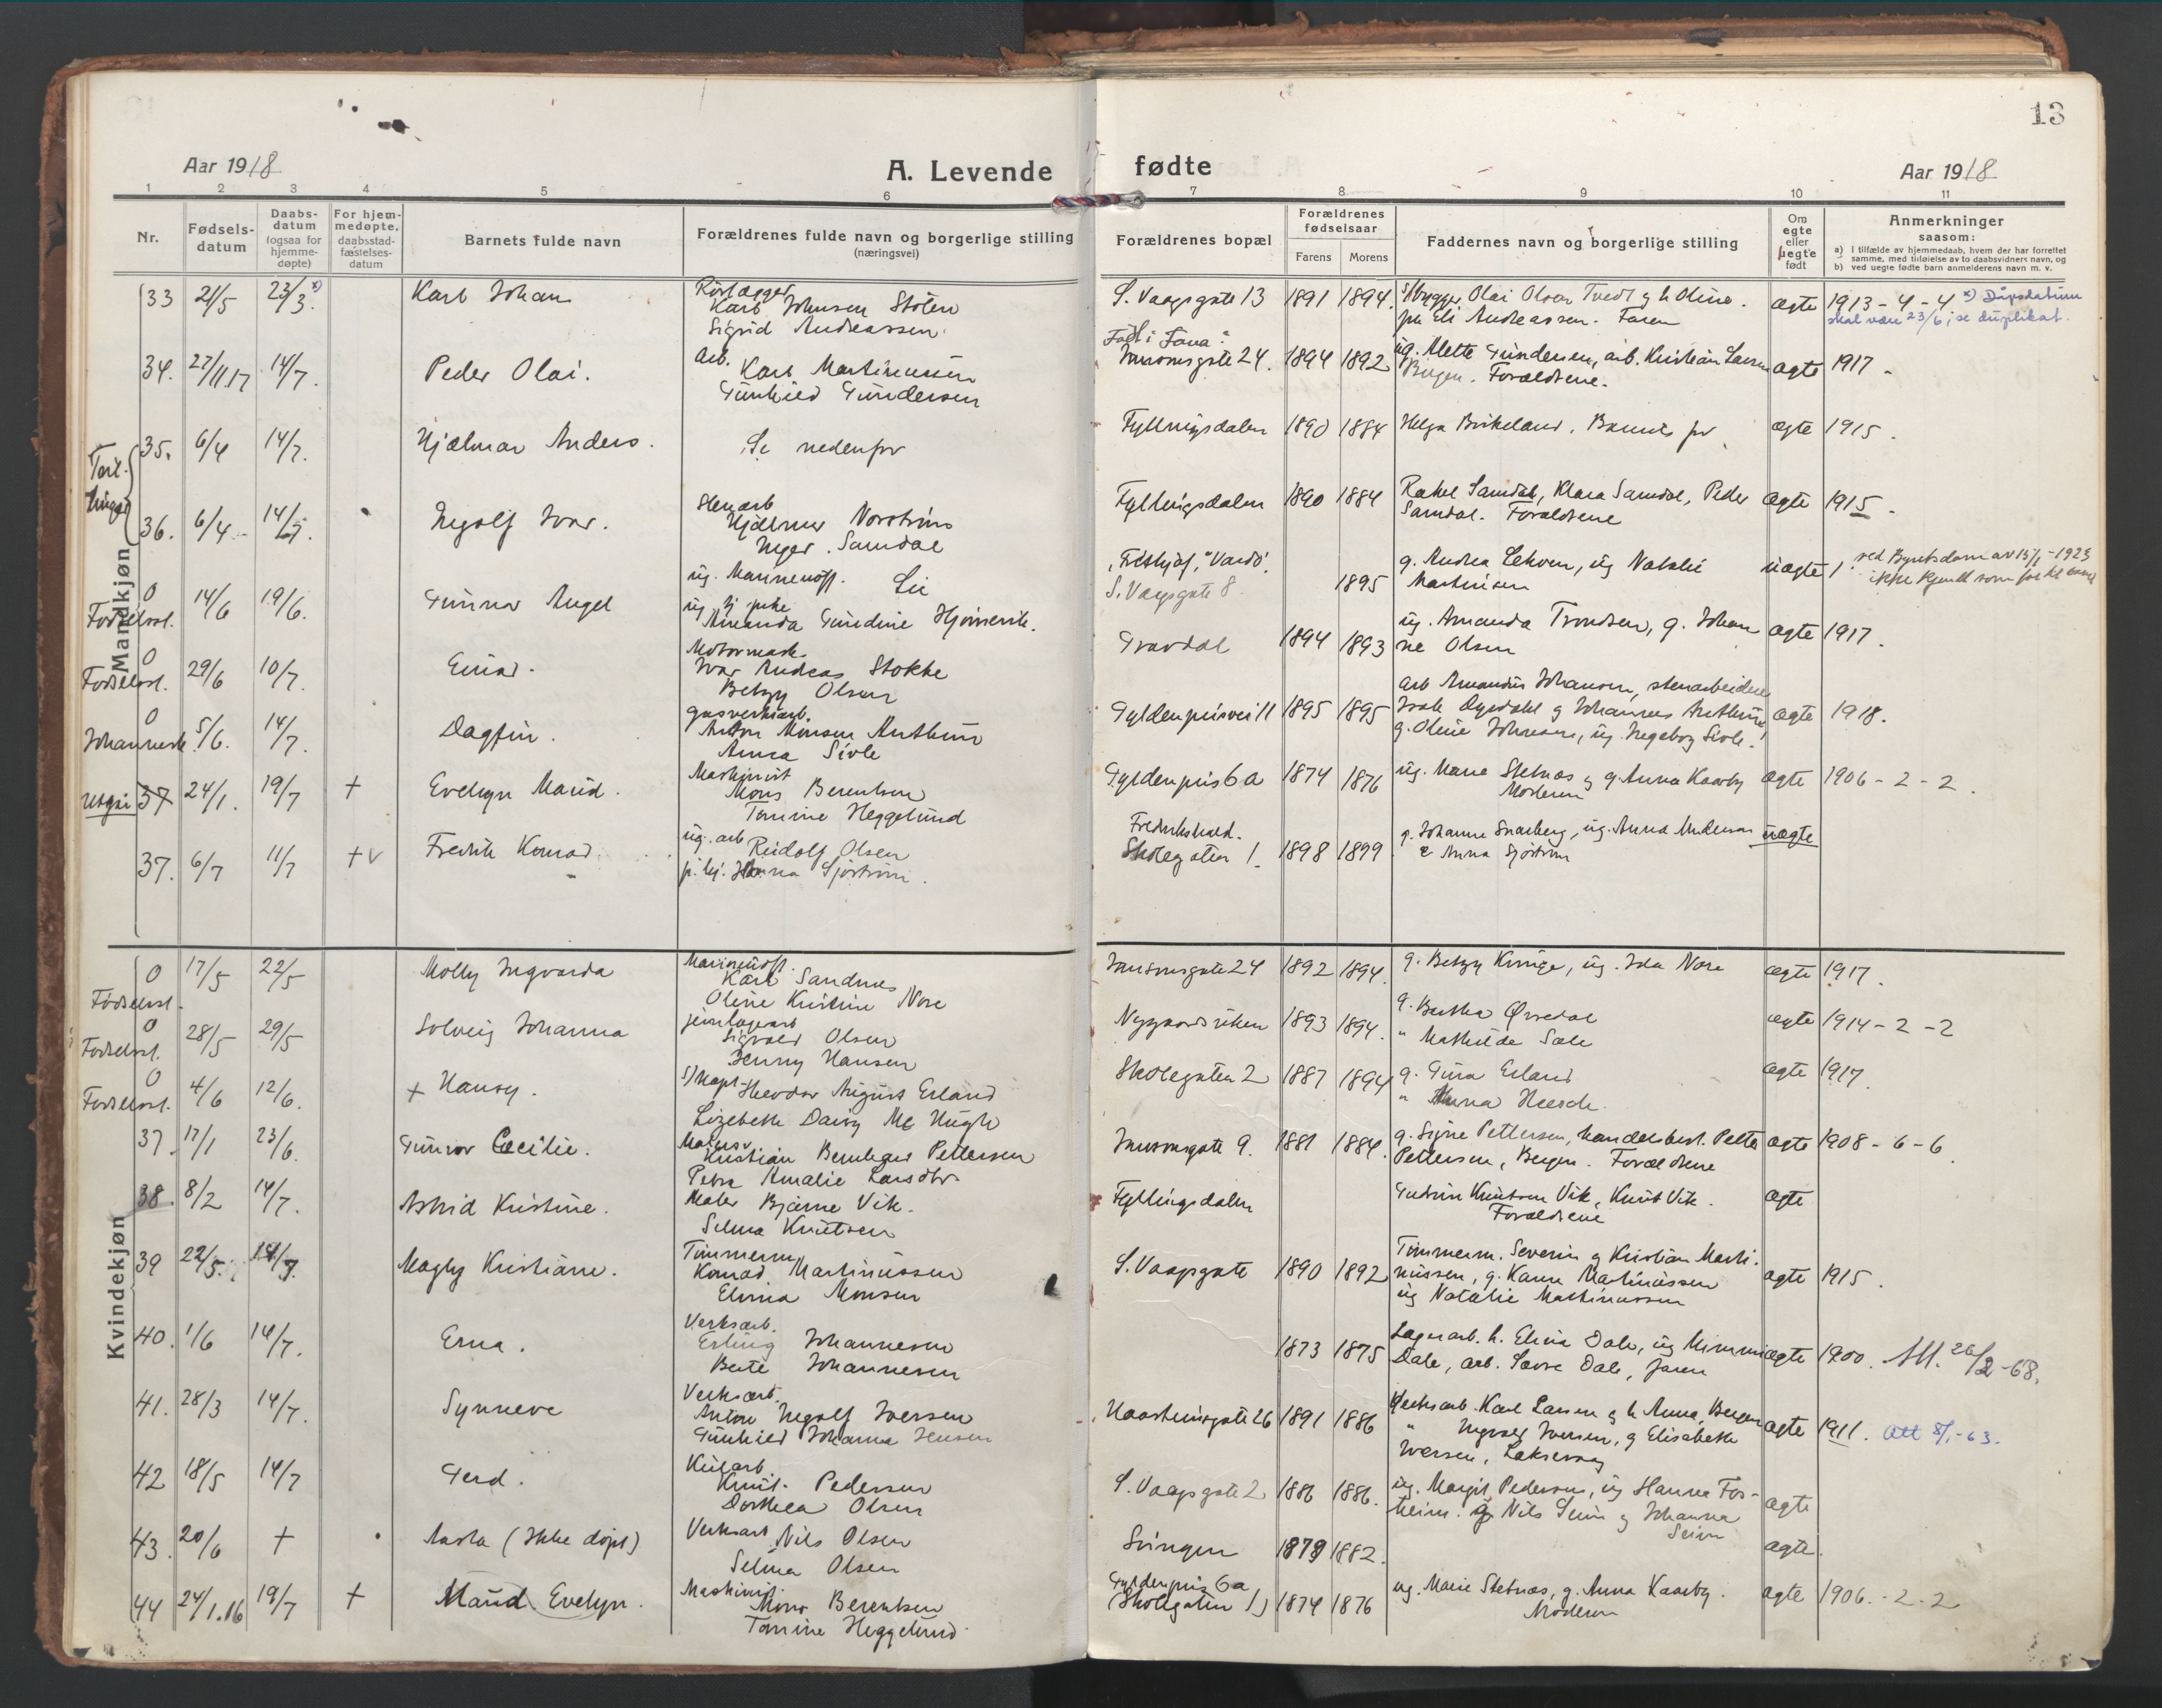 13
Aar 1918
A. Levende fødte
Aar 1918
1 2 3 4 5 6 7 8 9 10 11
Nr.
Fødsels-datum
Daabs-datum (ogsaa for hjemme-døpte)
For hjem-medøpte, daabsstad-fæstelses-datum
Barnets fulde navn
Forældrenes fulde navn og borgerlige stilling (næringsvei)
Forældrenes bopæl
Forældrenes fødselsaar
Farens Morens
Faddernes navn og borgerlige stilling
Om egte eller uegte født
Anmerkninger saasom:
a) I tilfælde av hjemmedaab, hvem der har forrettet samme, med tilføielse av to daabsvidners navn, og
b) ved uegte fødte barn anmelderens navn m. v.
Mandkjøn
33 21/5 23/3 x) Karl Johan
Rørlægger Karl Johnsen Stølen
Sigrid Andreassen
S. Vaagsgate 13 1891 1894
Olai Olsen Tvedt g h Oline.
Eli Andreassen. Faren
ægte 1913 - 4 - 4 x) Dåpsdatum
skal være 23/6, se duplikat.
34. 27/11 17 14/7. Peder Olai.
Arb. Karl Martinussen
Gunhild Gundersen
Født i Fana
24. 1894 1892
ug. Mette Gundersen, arb. Kristian Larsen
Bergen. Forældrene.
ægte 1917
Tvil-linger
35. 6/4 14/7. Hjalmar Anders.
Se nedenfor
Fyllingsdalen 1890 1884
Helga Birkeland.
ægte 1915.
36. 6/4 14/7. Ingolf Ivar.
Stenarb Hjalmar Norstrøm
Inger Samdal
Fyllingsdalen 1890 1884
Rakel Samdal, Klara Samdal, Peder
Samdal. Forældrene
ægte 1915.
0 Fødselsst. 14/6 19/6. Gunnar Angel
ug. Lie
Amanda Gundine
"Fridtjof", "Vardø".
S. Vaagsgate 8 1895
g. Andrea Lekven, ug Natalie
Martinsen
uægte 1. ved Byretsdom av 1923
ikke kjendt som far til barnet
0 Fødselsst. 29/6 10/7. Einar.
Motormask. Ivar Andreas Stokke
Betzy Olsen
Gravdal 1894 1893
ug. Amanda Trondsen, g. Johan
ne Olsen
ægte 1917.
0 Johannesk. 5/6. 14/7. Dagfin.
gasverksarb. Anton Monsen Anthun
Anna Sivle
Gyldenprisvei 11 1895 1895
arb Amandus Johansen, stenarbeider
g Johannes Anthun
g. Oline Johnsen, ug. Ingeborg Sivle.
ægte 1918.
Utgår 37 24/1. 19/7 + Evelyn Maud.
Maskinist Mons Berentsen
Tomine Heggelund
Gyldenpris 6 a 1874 1876
ug. Marie Stetnæs g g. Anna Kaarby
Moderen
ægte 1906 - 2 - 2.
37. 6/7 11/7 + v Fredrik Konrad
ug. arb Reidolf Olsen
p. hj. Hanna Sjøstrøm.
Fredrikshald.
Skolegaten 1. 1898 1899
g. Johanne Snarberg, ug. Anna Andersen
& Anna Sjøstrøm
uægte
Kvindekjøn
0 Fødselsst. 17/5 22/5 Molly Ingvarda
Karl Sandnes
Oline Kristine Nore
24 1892 1894.
g. Betzy Kringe, ug. Ida Nore
ægte 1917.
0 Fødselsst. 28/5 29/5 Solveig Johanna
Sigvald Olsen
Jenny Hansen
Nygaardsviken 1893 1894.
g. Bertha Ørredal
" Mathilde Sæle
ægte 1914 - 2 - 2
0 Fødselsst. 4/6 12/6. + Hansy.
S/kapt. Theodor August Erland
Lizebeth Daisy Mc Hugh
Skolegaten 2 1887 1894
g. Gina Erland
" Anna Heesch.
ægte 1917.
37. 17/1 23/6. Gunvor Cecilie.
Kristian Bernhard Pettersen
Petra Amalie Larsdtr
9. 1881 1884.
g. Signe Pettersen, handelsbest. Petter
Pettersen, Bergen. Forældrene
ægte 1908 - 6 - 6.
38. 8/2 14/7. Astrid Kristine.
Maler Bjarne Vik.
Selma Knutsen
Fyllingsdalen
Gudrun Knutsen Vik, Knut Vik.
Forældrene
ægte
39 22/5. 14/7. Magly Kristiane.
Timmerm. Konrad Martinussen
Elvina Monsen
S. Vaagsgate 1890 1892
Timmerm. Severin g Kristian Marti-
nussen, g. Karen Martinussen
ug Natalie Martinussen
ægte 1915.
40. 1/6 14/7. Erna.
Verksarb. Erling Johannesen
Berte Johannesen
1873 1875
Lagerarb. h. Elvin Dale, ug Mimmi
Dale, arb. Dale, faren
ægte 1900. Att. 26/2-68.
41. 28/3 14/7. Synneve
Verksarb. Anton Ingolf Iversen
Gunhild Johanna Jensen
26 1891 1886
Verksarb. Karl Larsen g h Anna, Bergen
" Ingvald Iversen, g Elisabeth
Iversen, Laksevaag
ægte 1911. Att 8/1-63.
42 18/5 14/7 Gerd.
Kularb. Knut Pedersen
Dorthea Olsen
S. Vaagsgate 2 1886 1886.
ug. Margit Pedersen, ug Hanna Fos-
heim. g Nils Seim g Johanna
Seim
ægte
43. 20/6 + Aasta (Ikke døpt)
Verksarb Nils Olsen
Selma Olsen
Svingen 1879 1882.
ægte.
44 24/1.16 19/7 + Maud Evelyn.
Maskinist Mons Berentsen
Tomine Heggelund
Gyldenpris 6a
(Skolegaten 1) 1874 1876
ug. Marie Stetnæs, g. Anna Kaarby.
Moderen
ægte 1906. - 2. 2